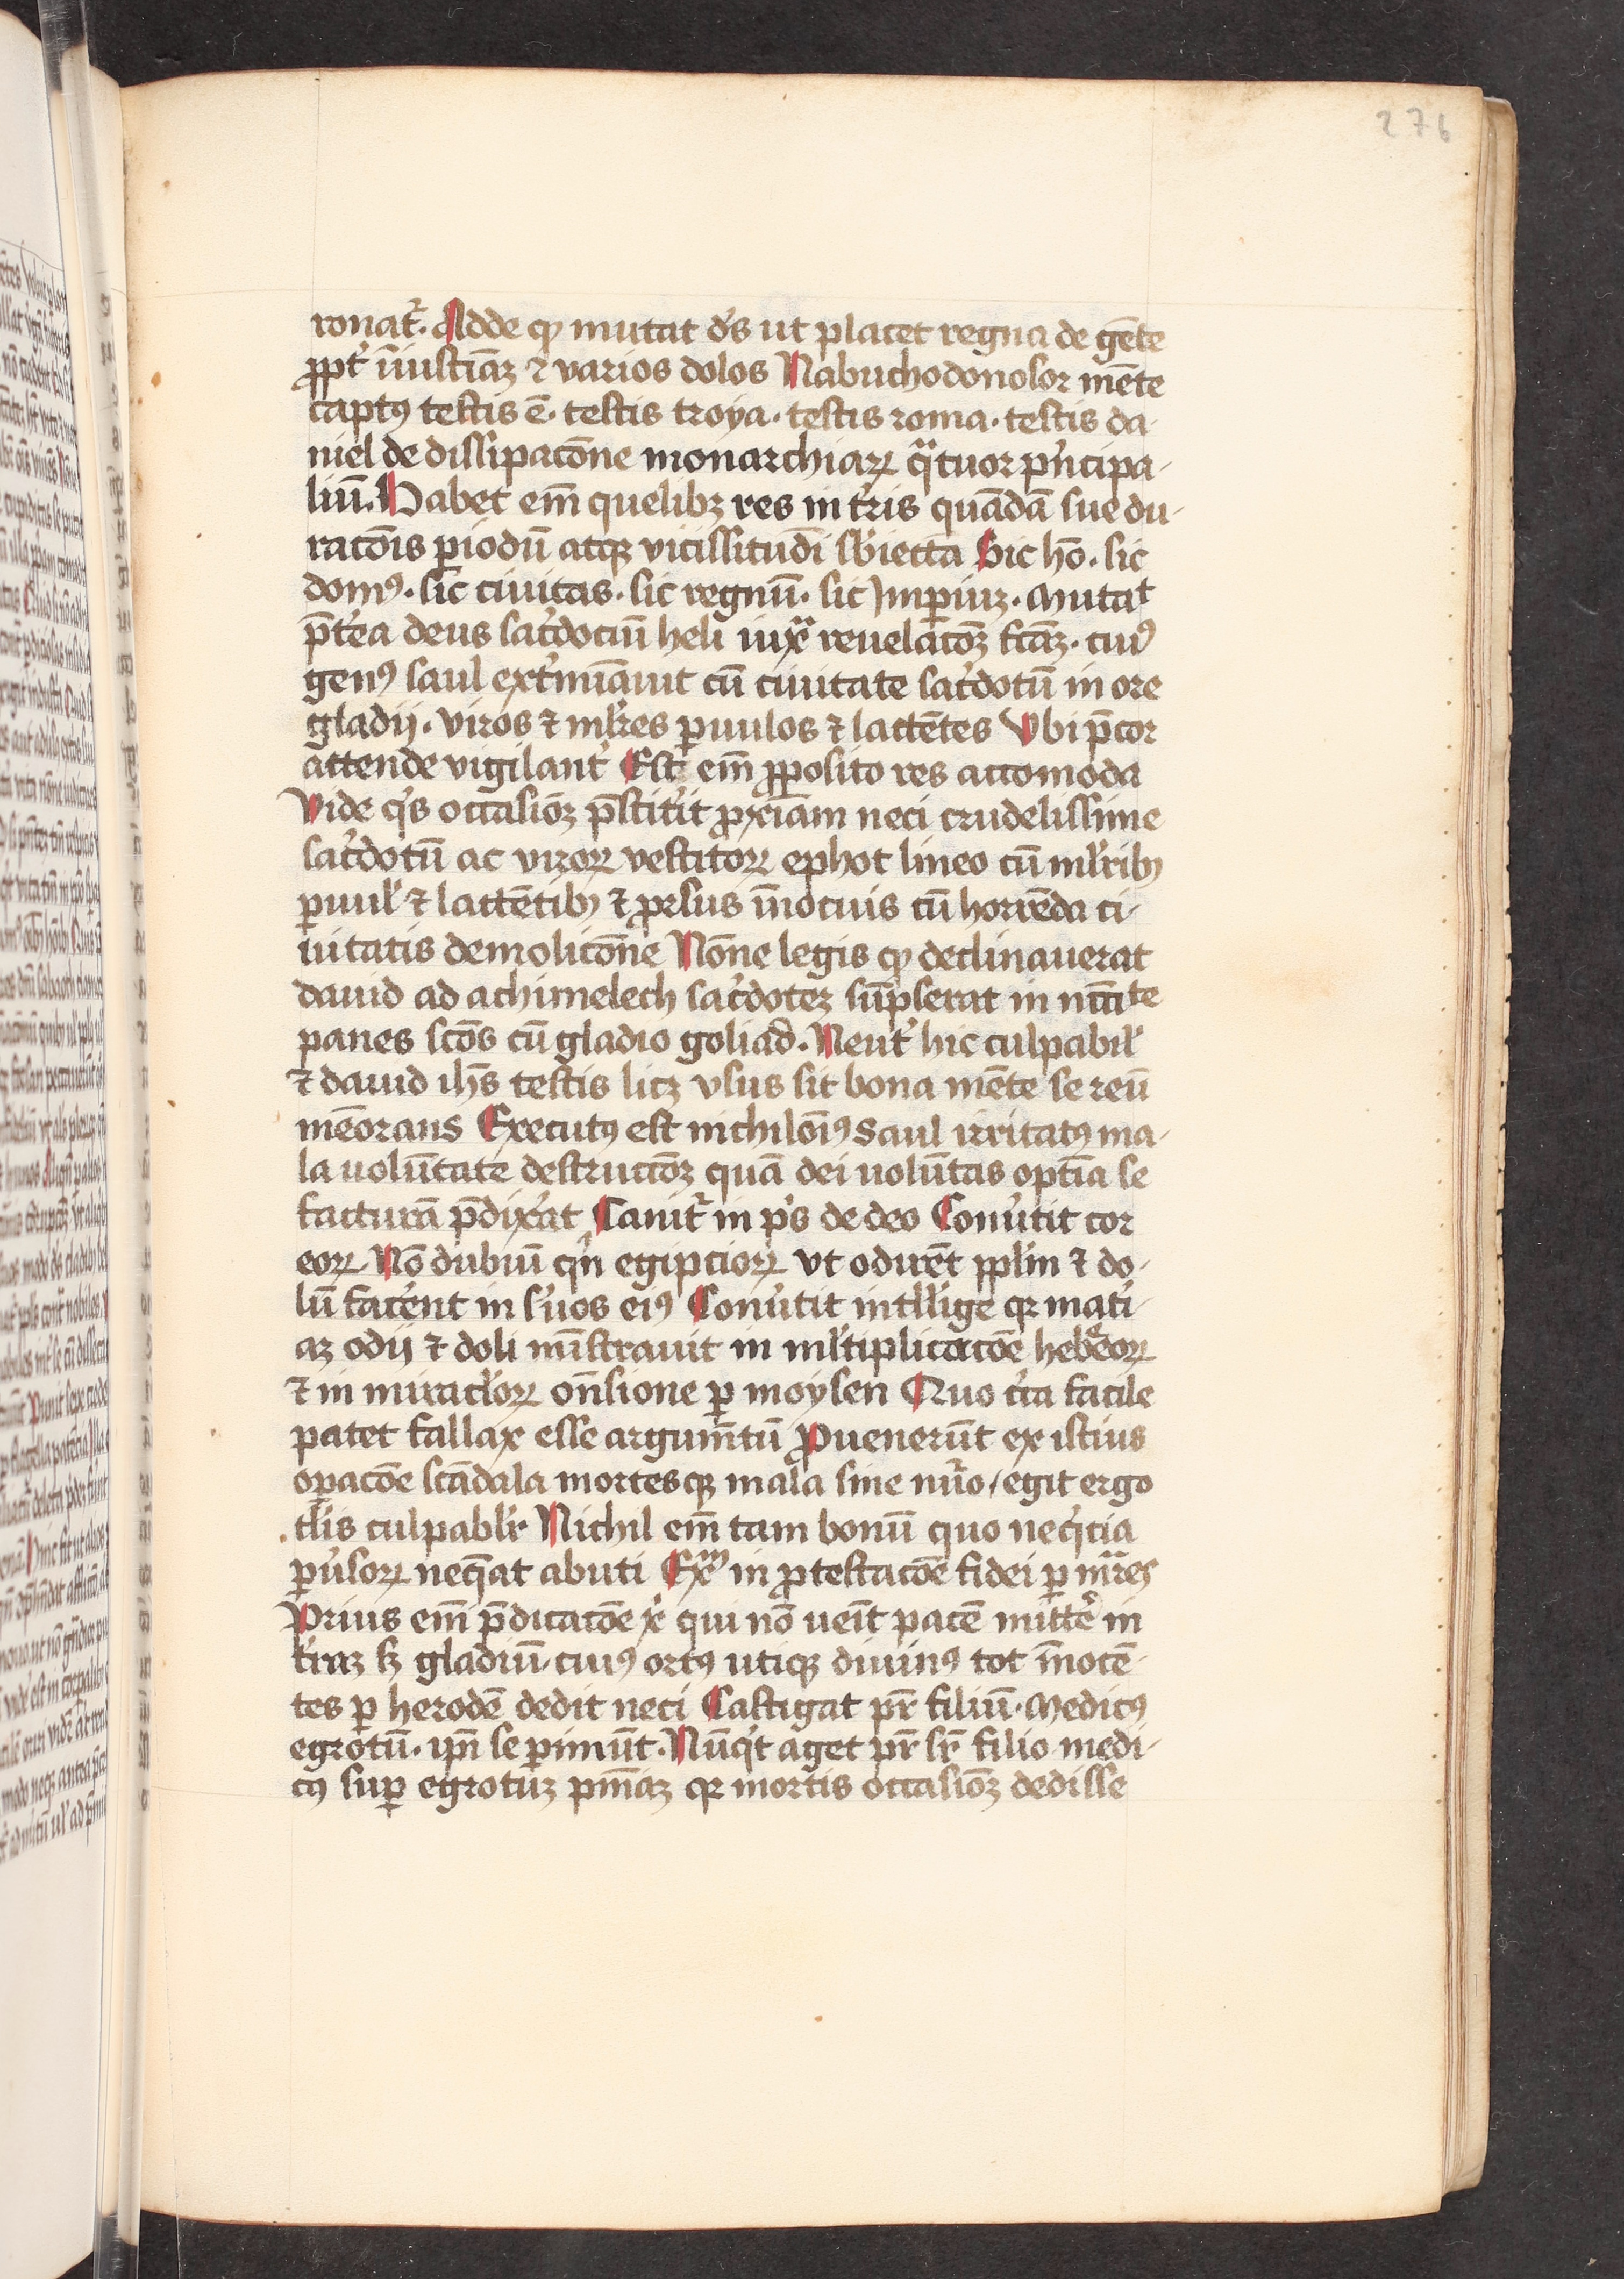 276
ronat᷑. Adde ꝙ mutat dẽs ut placet regna de gẽte
ꝓpt᷑ iniusticiaꝫ ⁊ varios dolos Nabuchodonosor mẽte
captꝰ testis ẽ. testis troya. testis roma. testis da-
niel de dissipacõne monarchiaꝝ qͣtuor pͥncipa-
liũ. Habet em̃ quelibꝫ res in tr̃is quãdã sue du-
racõis ꝑiodũ atqꝫ vicissitudĩ sb̾iecta Sic hõ. sic
domꝰ. sic ciuitas. sic regnũ. sic Imꝑiuꝫ. Mutat
p̃t᷑ea deus sac᷑dociũ heli iuxͣ reuelacõꝫ fc̃aꝫ. cuiꝰ
genꝰ saul ext᷑mĩauit cũ ciuitate sac᷑dotũ in ore
gladij. viros ⁊ ml̾r̾es ꝑuulos ⁊ lactẽtes Vbi p̃cor
attende vigilant᷑ Est em̃ ꝓposito res accomoda
Vide qͥs occasiõꝫ p̃stit᷑it ꝓximam neci crudelissime
sac᷑dotũ ac viroꝝ vestitoꝝ ephot lineo cũ ml̾ribꝰ
ꝑuul̾ ⁊ lactẽtibꝰ ⁊ ꝓrsus ĩnocuis cũ horrẽda ci-
iutatis demolicõne Nõne legis ꝙ declinauerat
dauid ad achimelech sac᷑doteꝫ sũpserat in nc̃c̃itate
panes scõs cũ gladio goliad. Neut᷑ hic culpabil̾
⁊ dauid ihs̃ testis licꝫ vsus sit bona mẽte se reũ
mẽorans Executꝰ est nichilõiꝰ Saul irritatꝰ ma-
la uolũtate destructõꝫ quã dei uolũtas optĩa se
facturã p̃dix᷑at Canit᷑ in pͥs de deo Conu᷑tit cor
eoꝝ Nõ dubiũ qͥn egipcioꝝ vt odirẽt ppl̾m ⁊ do-
lũ fac᷑ent in s᷑uos eiꝰ Conu᷑tit intll̾ige qꝛ mat᷑i-
aꝫ odij ⁊ doli mĩstrauit in ml̾tiplicacõe hebreoꝝ
⁊ in miracl̾oꝝ on̾sione ꝑ moysen Quo circa facile
patet fallax esse argum̃tũ ꝓuenerũt ex istius
oꝑacõe scãdala mortesqꝫ mala sine nũo / egit ergo
tl̾is culpabl̾r Nichil em̃ tam bonũ quo neqͥcia
ꝑu᷑soꝝ neq̃at abuti Exͫ in ꝓtestacõe fidei ꝑ mͬres
Prius em̃ p̃dicacõe xͥ qui nõ ueĩt pacẽ mitt᷑e in
t᷑raꝫ sꝫ gladiũ. cuiꝰ ortꝰ utiqꝫ diuinꝰ tot ĩnocẽ-
tes ꝑ herodẽ dedit neci Castigat pr̃ filiũ. Medicꝰ
egrotũ. ipͥi se ꝑimũt. Nũqͥd aget pr̃ sr̃ filio medi-
cꝰ suꝑ egrotuꝫ pnĩaꝫ qꝛ mortis occasiõꝫ dedisse